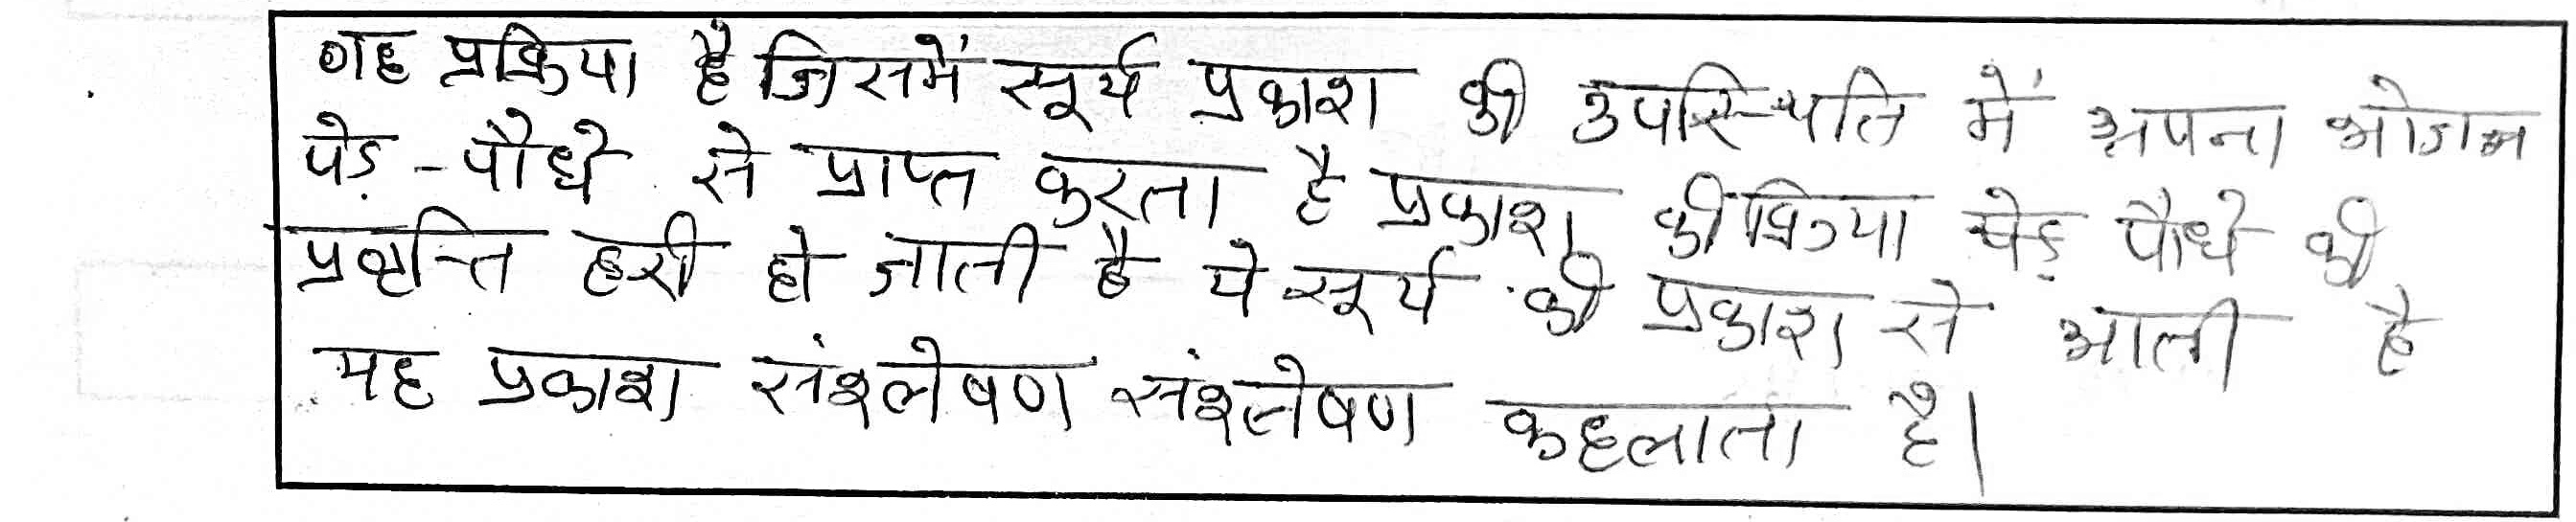 वह प्रक्रिया है जिसमें सूर्य प्रकाश की उपस्थिति में अपना भोजन
पेड़ - पौधे से प्राप्त करता है प्रकाश की क्रिया पेड़ पौधे की
प्रवृत्ति हरी हो जाती है ये सूर्य की प्रकाश से आती है
यह प्रकाश संश्लेषण संश्लेषण कहलाता है।